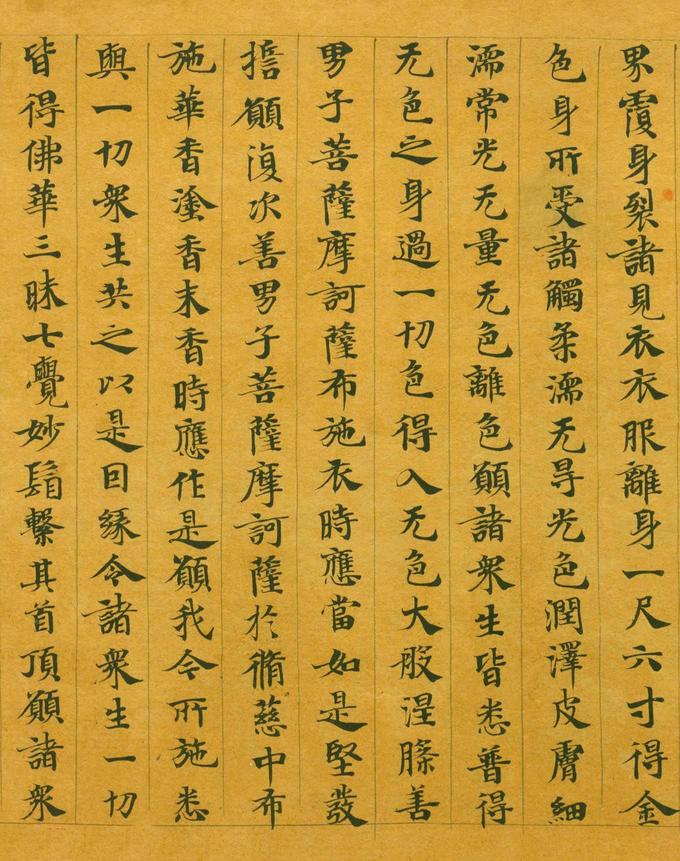 界覆身裂諸見衣衣服離身一尺六寸得金
色身所受諸觸柔濡无㝵光色潤澤皮膚細
濡常光无量无色離色願諸衆生皆悉普得
无色之身過一切色得入无色大般涅槃善
男子菩薩摩訶薩布施衣時應當如是堅發
誓願復次善男子菩薩摩訶薩於脩慈中布
施華香塗香末香時應作是願我今所施悉
與一切衆生共之以是因緣令諸衆生一切
皆得佛華三昧七覺妙鬘繫其首頂願諸衆